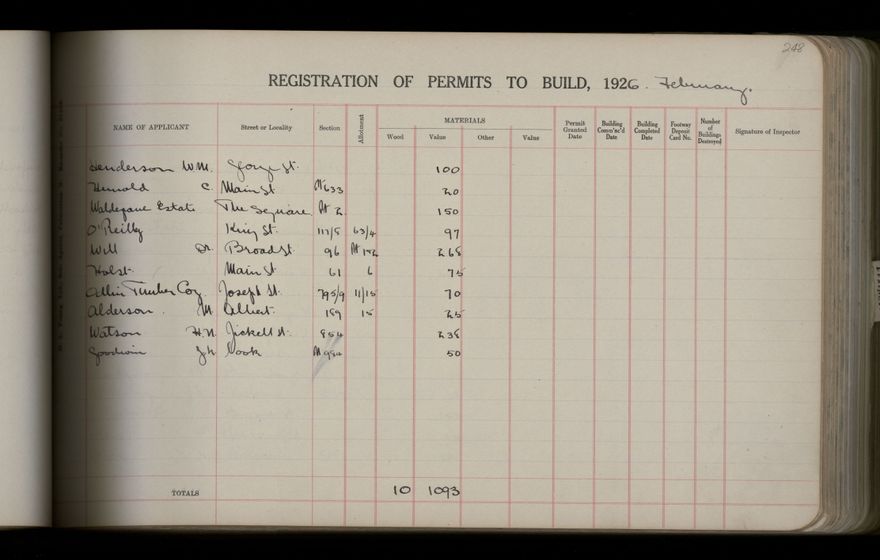 248
REGISTRATION OF PERMITS TO BUILD, 1926. February.
NAME OF APPLICANT Street or Locality Section Allotment MATERIALS Wood Value Other Value Permit Granted Date Building Comm'nc'd Date Building Completed Date Footway Deposit Card No. Number of Buildings Destroyed Signature of Inspector
Henderson W.M. George St. 100
C. Main St Pt 633 20
Waldegrave Estate The Square Pt 2 150
O'Reilly King St. 117/8 63/4 97
Will Dr. Broad St 96 Pt 268
Holst. Main St 61 6 75
Timber Coy. Joseph St. 795/9 11/15 70
Alderson. M Albert. 189 15 25
Watson H.N. Jickell St. 854 238
Goodwin Cook Pt 984 50
TOTALS 10 1093